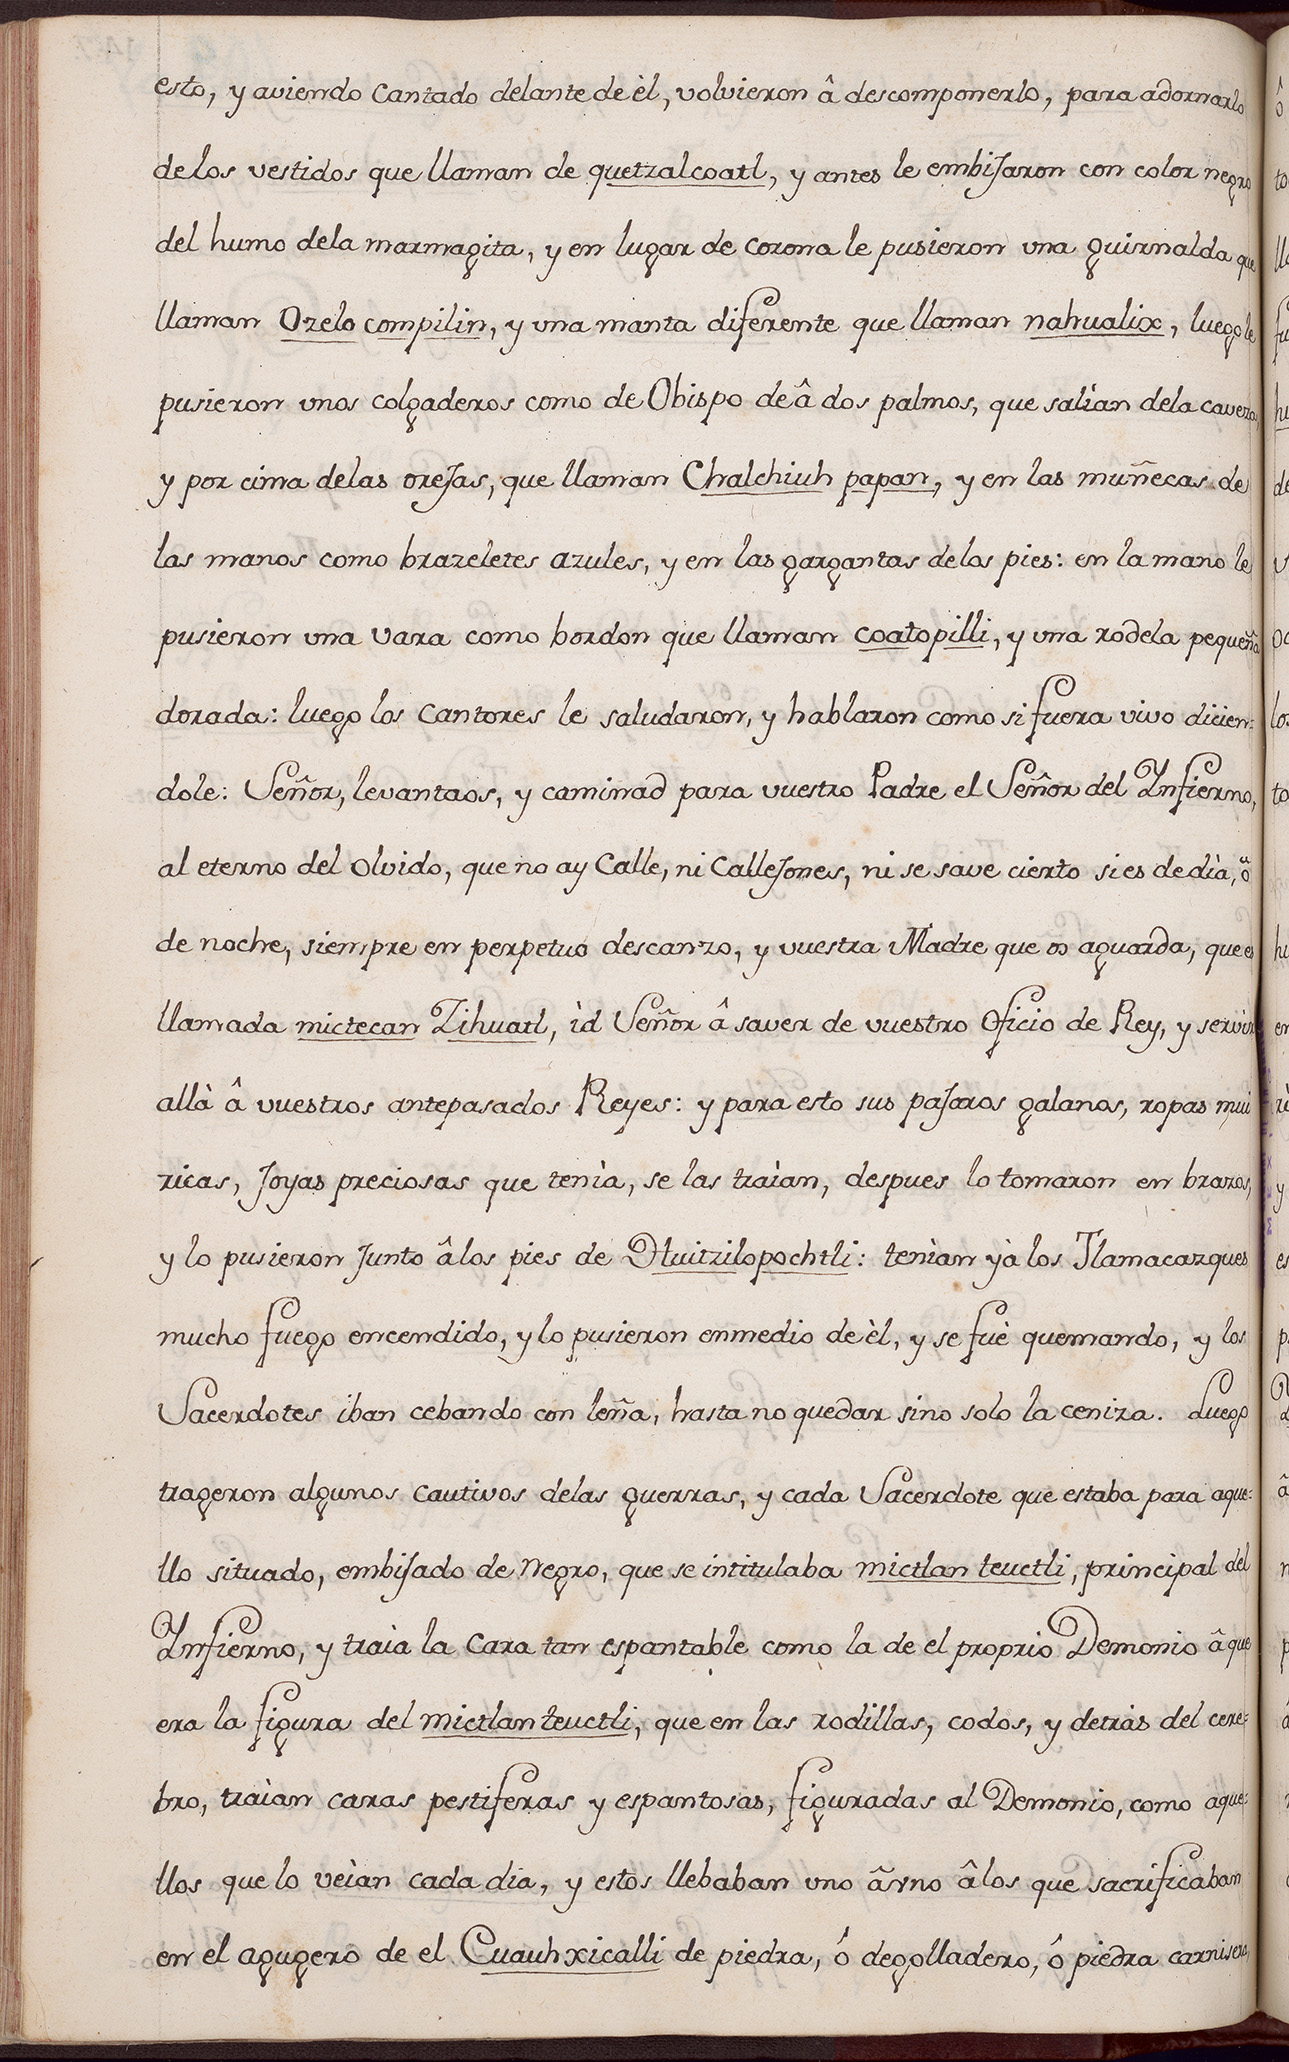 esto, y aviendo Cantado delante de èl, volvieron â descomponerlo, para adornarlo
delos vestidos que llaman de quetzalcoatl, y antes le embiJaron con color negro
del humo dela marmagita, y en lugar de corona le pusieron vna guirnalda que
llaman Ozelo compilin, y vna manta diferente que llaman nahualix, luego le
pusieron vnos colgaderos como de Obispo de â dos palmos, que salìan dela caveza,
y por cima delas oreJas, que llaman Chalchiuh papan, y en las muñecas de
las manos como brazeletes azules, y en las gargantas delos pies: en la mano le
pusieron vna vara como bordon que llaman coatopilli, y vna rodela pequeña
dorada: luego los Cantores le saludaron, y hablaron como si fuera vivo dicien=
dole: Señor, levantaos, y caminad para vuestro Padre el Señor del Ynfierno,
al eterno del olvido, que no ay Calle, ni CalleJones, ni se save cierto si es de dìa, ô
de noche, siempre en perpetuo descanzo, y vuestra Madre que os aguarda, que es
llamada mictecan Zihuatl, ìd Señor â saver de vuestro oficio de Rey, y servir
allà â vuestros antepasados Reyes: y para esto sus paJaros galanos, ropas mui
ricas, Joyas preciosas que tenìa, se las traìan, despues lo tomaron en brazos,
y lo pusieron Junto âlos pies de Huitzilopochtli: tenìan yà los Tlamacazques
mucho fuego encendido, y lo pusieron enmedio de èl, y se fuè quemando, y los
Sacerdotes iban cebando con leña, hasta no quedar sino solo la ceniza. Luego
trageron algunos cautivos delas guerras, y cada Sacerdote que estaba para aque=
llo situado, embiJado de negro, que se intitulaba mictlan teuctli, principal del
Ynfierno, y traìa la cara tan espantable como la de el proprio Demonio â que
era la figura del mictlan teuctli, que en las rodillas, codos, y detras del cere=
bro, traìan caras pestiferas y espantosas, figuradas al Demonio, como aque=
llos que lo veìan cada dia, y estos llebaban vno âvno âlos que sacrificaban
en el agugero de el Cuauhxicalli de piedra, ó degolladero, ó piedra carnisera,